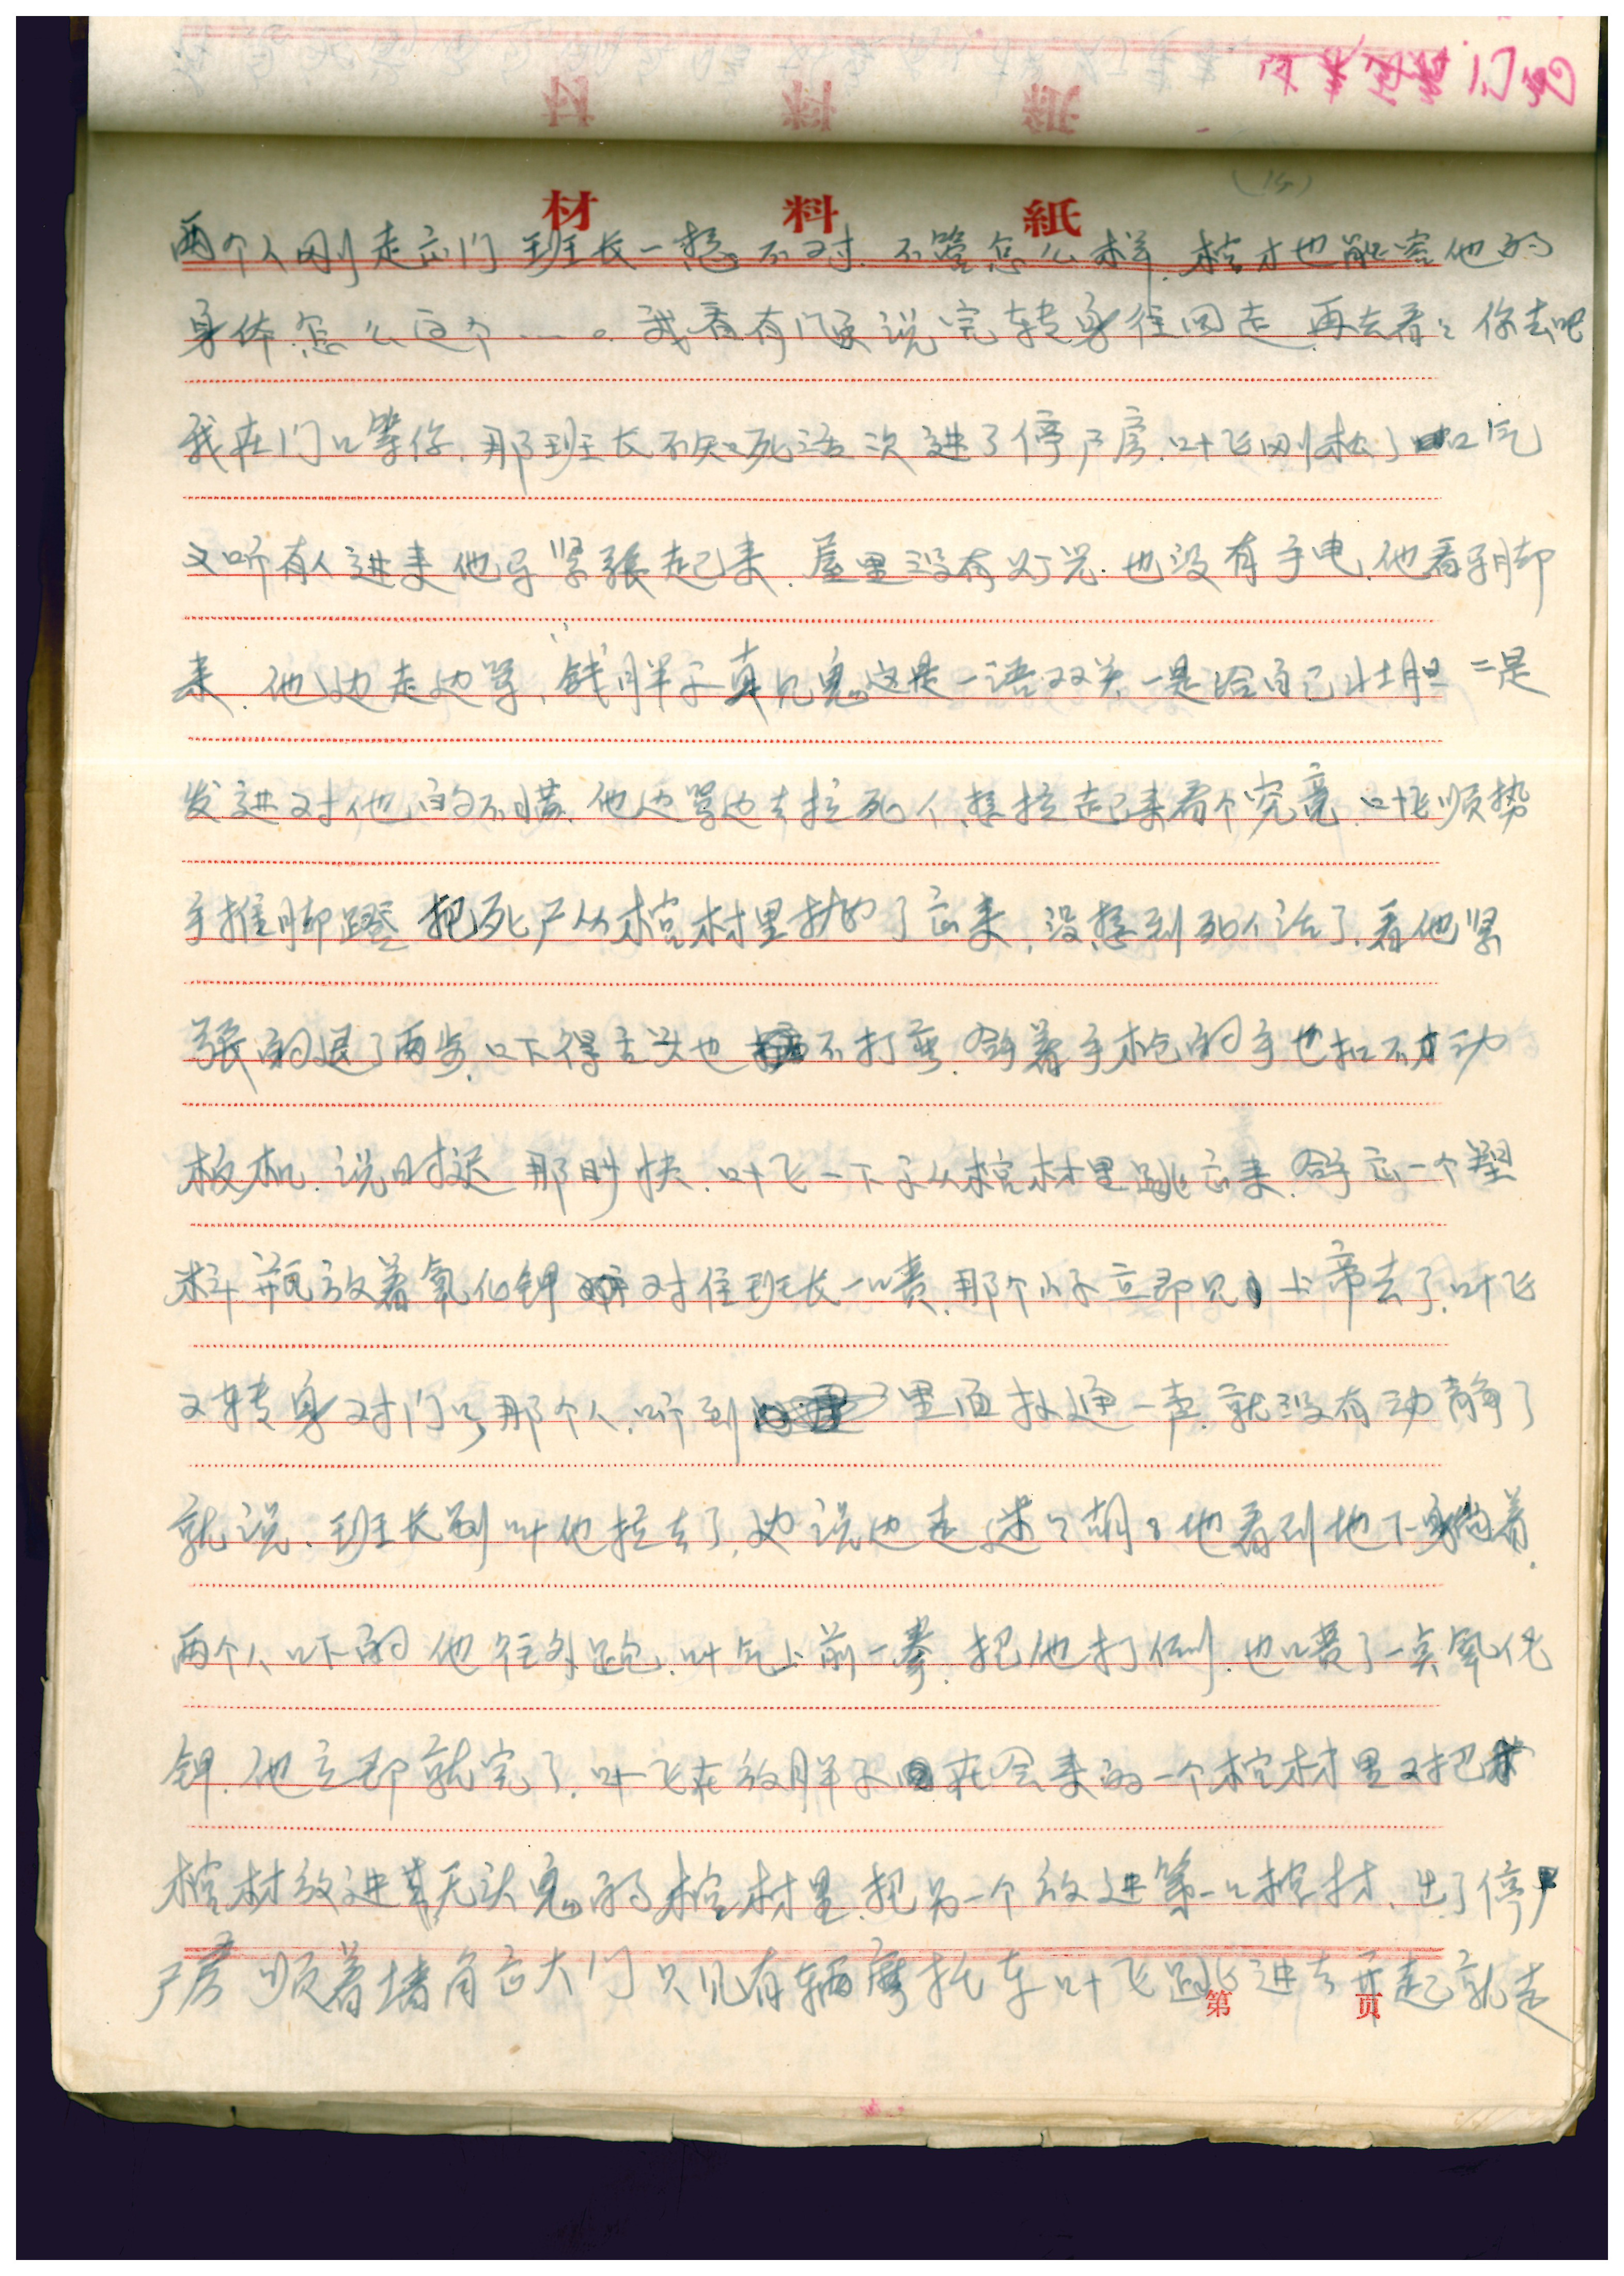 (15)
材料紙
两个人刚走出门班长一想不对.不管怎么样.棺才也能容他的
身体.怎么这个……。我看有门题说完转身往回走.再去看々你去吧
我在门口等你.那班长不知死活次进了停尸房.叶飞刚松了口气
又听有人进来他又紧张起来.屋里没有灯光.也没有手电.他看
来.他边走边骂、钱胖子真见鬼这是一语双关一是给自己壮胆二是
发进对他的不满.他边骂边去拉死人.想拉起来看个究竟.叶飞顺势
手推脚蹬把死尸从棺材里抛了出来.没想到死人活了.看他紧
张的退了两步.吓得舌头也不打弯.拿着手枪的手也扣不动
板机.说时迟那时快.叶飞一下子从棺材里跳出来.拿出一个塑
料瓶放着氰化钾对住班长一喷.那个小子立即见上帝去了.叶飞
又转身对门口那个人.听到里面扑通一声.就没有动静了
就说、班长别叫他拉去了.边说边走迷々胡々他看到地下躺着.
两个人吓的他往外跑.叶飞上前一拳.把他打倒.也喷了一点氰化
钾.他立即就完了.叶飞在放胖子在会来的一个棺材里又把
棺材放进其无头鬼的棺材里.把另一个放进第一口棺材、出了停尸
尸房顺着墙角出大门只见有辆摩托车叶飞跳进去开起就走
第 页